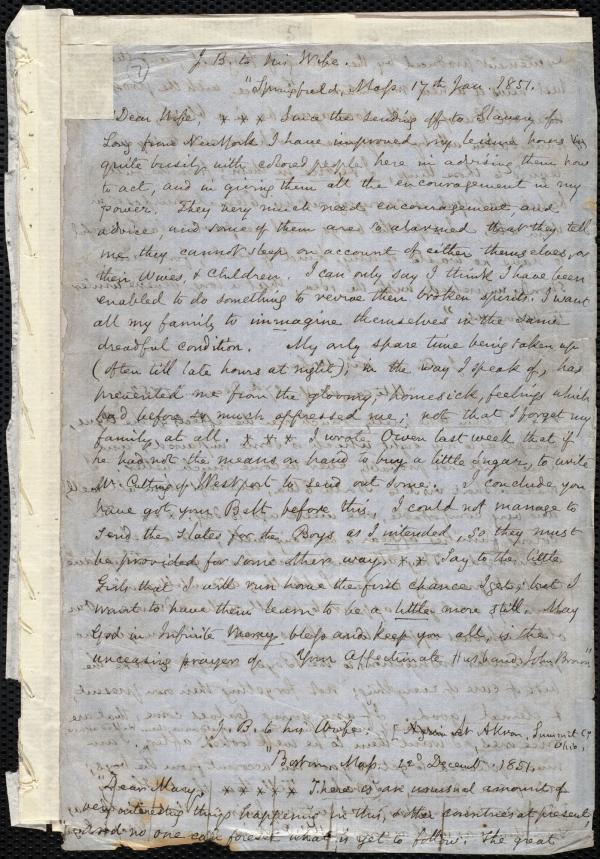 (7)
J. B. to his Wife.
"Springfield, Mass. 17th Jan. 1851.
Dear Wife, x x x Since the sending off to Slavery of
Long from New York I have improved my leisure hours
quite busily with colored people here in advising them how
to act, and in giving them all the encouragement in my
power. They very much need encouragement, and
advice, and some of them are so alarmed that they tell
me they cannot sleep on account of either themselves, or
their Wives, & Children. I can only say I think I have been
enabled to do something to revive their broken spirits. I want
all my family to immagine themselves in the same
dreadful condition. My only spare time being taken up
(often till late hours at night); in the way I speak of, has
prevented me from the gloomy, homesick, feelings which
had before so much oppressed me; not that I forget my
family at all. x x x I wrote Owen last week that if
he had not the means on hand to buy a little sugar, to write
Mr. Cutting of Westport to send out some. I conclude you
have got your Belt before this. I could not manage to
send the slates for the Boys as I intended, so they must
be provided for some other way. x x Say to the little
Girls that I will run home the first chance I get; but I
want to have them learn to be a little more still. May
God in Infinite Mercy bless and keep you all, is the
unceasing prayer of Your Affectionate Husband, John Brown"
J. B. to his Wife. [Akron, Summit Co
Ohio.
"Boston Mass. 22d Decemb. 1851.
"Dear Mary, x x x x x There is an unusual amount of
very interesting things happening in this, & other countries at present,
and no one can foresee what is yet to follow. The great